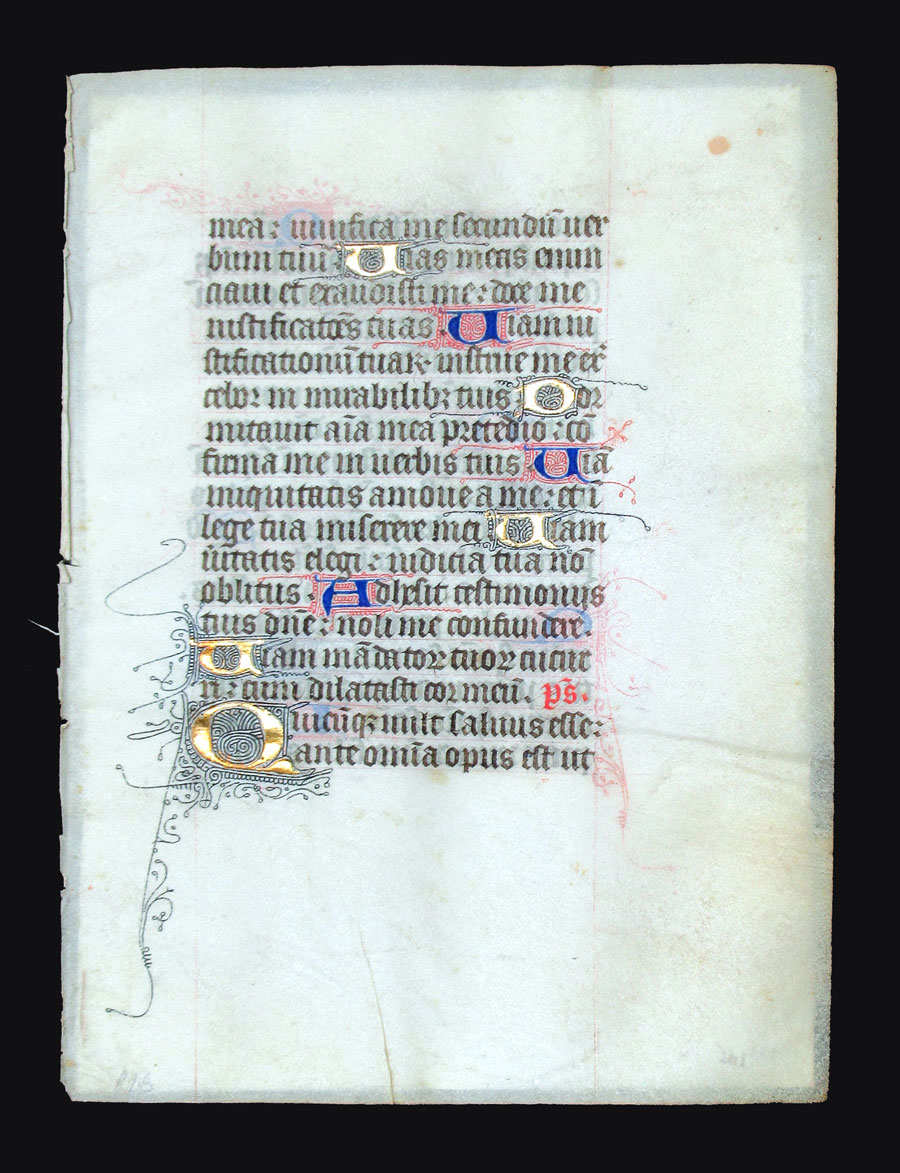 mea: uiuifica me secundū uer
bum tuū Uias meas enun
ciaui et exaudisti me: doce me
iustificatōēs tuas Uiam iu
stificationū tuaꝝ instrue me et ex
cebor in mirabilibꝫ tuis Dor
mitauit aīa mea pre tedio: cō
firma me in uerbis tuis Uiā
iniquitatis amoue a me: et ī
lege tua miserere mei Uiam
ūitatis elegi: iudicia tua nō
oblitus Adhesit testimonijs
tuis dn̄e: noli me confundere.
Uiam mādatoꝝ tuoꝝ cucur
ri: cum dilatasti cor meū. ps̄.
Quicūqꝫ uult saluus esse:
ante omīa opus est ut